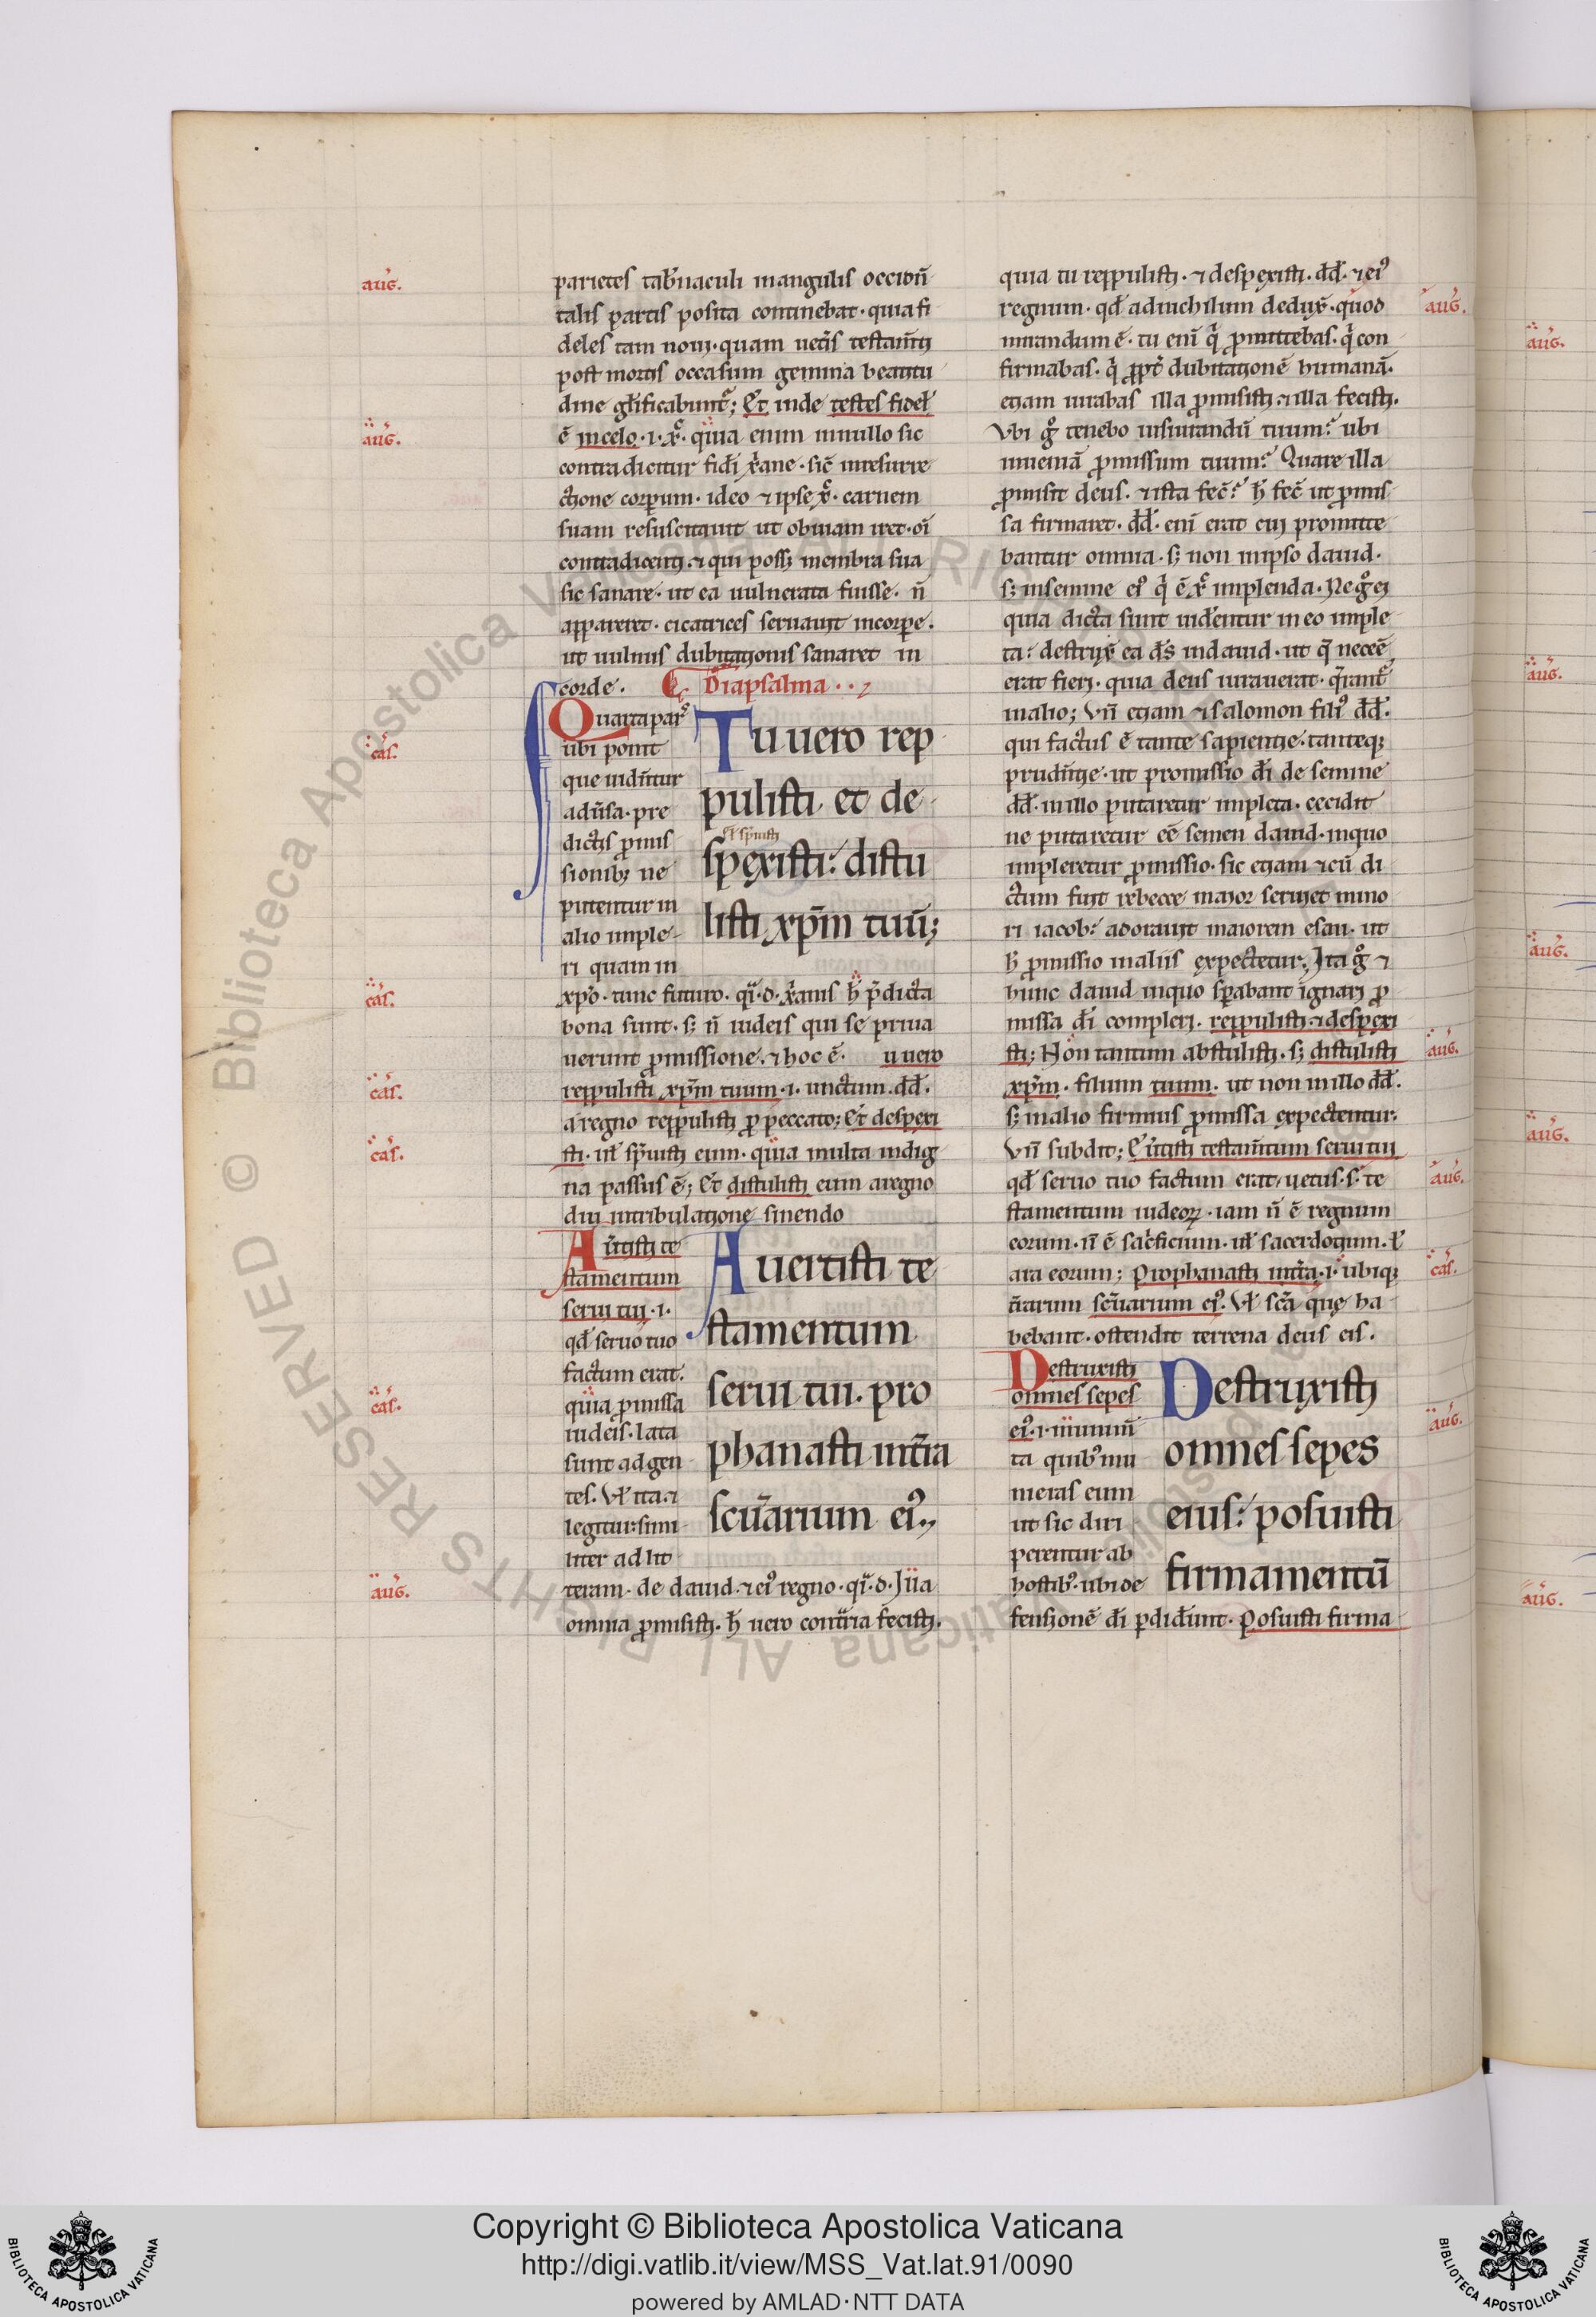 parietes tab̄naculi in angulis occidn̄
talis partis posita continebat · quia fi
deles tam noui · quam uet̄is testam̄ti
post mortis occasum gemina beatitu
dine gl̄ificabunt᷑; Et inde testes fidel̄
ē in celo · i · xp̄c · quia enim in nullo sic
contradicitur fidei xp̄iane · sic̄ in resurre
ctione corporum · ideo ⁊ ipse xp̄c · carnem
suam resuscitauit ut obuiam iret · oī
contradicenti · ⁊ qui posset membra sua
sic sanare · ut ea uulnerata fuisse · n̄
appareret · cicatrices seruauit in corpore ·
ut uulnus dubitationis sanaret in
corde .
Diapsalma
Quarta pars
ubi ponit
que uidn̄tur
aduersa · pre
dictis promis
sionibꝫ ne
putentur in
alio imple
ri quam in
Tu uero rep
pulisti et de
ł spreuisti
spexisti: distu
listi xp̄m tuū;
xp̄o · tunc futuro · q · d · xp̄ianis h̄ p̄dicta
bona sunt · sꝫ n̄ iudeis qui se priua
uerunt promissione · ⁊ hoc ē · u uero
reppulisti xp̄m tuum · i · unctum · dd̄ ·
a regno reppulisti pro peccato; Et despexi
sti · uł spreuisti eum · quia multa indig
na passus ē; Et distulisti eum a regno
diu in tribulatione sinendo
Auertisti te
stamentum
serui tui · i ·
qd̄ seruo tuo
factum erat ·
quia promissa
iudeis · lata
sunt ad gen
tes · Vł ita · ⁊
legitur simi
liter ad lit
Auertisti te
stamentum
serui tui · pro
phanasti int̄ra
scūarium ei᷒
teram · de dauid · ⁊ ei᷒ regno · q · d · Illa
omnia promisisti · h̄ uero contraria fecisti ·
quia tu reppulisti · ⁊ despexisti · dd̄ · ⁊ ei᷒
regnum · qd̄ ad nichilum dedux̄ · quod
mirandum ē · tu eni q̄ promittebas · q̄ con
firmabas · q̄ propt̄ dubitationē humanā ·
etiam iurabas illa promisisti · ⁊ illa fecisti ·
Vbi gͦ tenebo iusiurandū tuum? ubi
inueniā promissum tuum? Quare illa
promisit deus · ⁊ ista fec̄? h̄ fec̄ ut promis
sa firmaret · dd̄ · eni erat cui promitte
bantur omnia · sꝫ non in ipso dauid ·
sꝫ in semine ei᷒ q̄ ē xp̄c implenda · Ne gͦ ei
quia dicta sunt uiderentur in eo imple
ta: destrux̄ ea d̄s in dauid · ut q̄ necē̄e
erat fieri · quia deus iurauerat · q̄rant᷑
in alio; Vn̄ etiam ⁊ salomon fili᷒ dd̄ ·
qui factus ē tante sapientie · tanteqꝫ
prudn̄tie · ut promissio d̄i de semine
dd̄ · in illo putaretur impleta · cecidit
ne putaretur eē semen dauid · in quo
impleretur promissio · sic etiam ⁊ cū di
ctum fuit rebecce maior seruiet mino
ri iacob: adorauit maiorem esau · ut
h̄ promissio in aliis expectetur, Ita gͦ ⁊
hunc dauid in quo sperabant ignari pro
missa d̄i compleri · reppulisti ⁊ despexi
sti; Non tantum abstulisti · sꝫ distulisti
xp̄m · filium tuum · ut non in illo dd̄ ·
sꝫ in alio firmius promissa expectentur ·
Vn̄ subdit; Euertisti testam̄tum serui tui
qd̄ seruo tuo factum erat, uetus · s · te
stamentum iudeorꝝ · iam n̄ ē regnum
eorum · n̄ ē sac̄ficium · uł sacerdotium · ł
ara eorum; Prophanasti in t̄ra · i · ubiqꝫ
t̄rarum scūarium ei᷒ · Vł scā que ha
bebant · ostendit terrena deus eis ·
Destruxisti
omnes sepes
ei᷒ · i · munim̄
ta quib᷒ mu
nieras eum
ut sic diri
perentur ab
hostib᷒ · ubi de
Destruxisti
omnes sepes
eius: posuisti
firmamentū
fensionē d̄i perdider̄unt · Posuisti firma
aug.
aug.
cas.
cas.
cas.
cas.
cas.
aug.
aug.
aug.
aug.
cas.
aug.
aug.
aug.
aug.
aug.
aug.
Copyright © Biblioteca Apostolica Vaticana
http://digi.vatlib.it/view/MSS_Vat.lat.91/0090
powered by AMLAD·NTT DATA
BIBLIOTECA APOSTOLICA VATICANA
BIBLIOTECA APOSTOLICA VATICANA